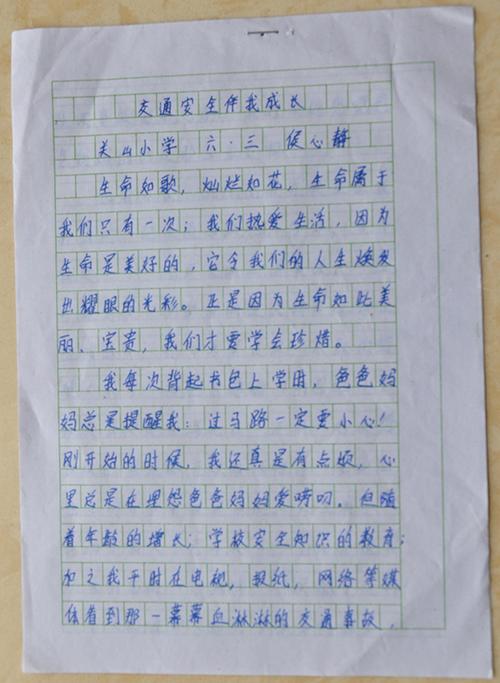 交通安全伴我成长
关山小学 六·三 侯心静
生命如歌，灿烂如花，生命属于
我们只有一次；我们热爱生活，因为
生命是美好的，它令我们的人生焕发
出耀眼的光彩。正是因为生命如此美
丽、宝贵，我们才要学会珍惜。
我每次背起书包上学时，爸爸妈
妈总是提醒我：过马路一定要小心！
刚开始的时候，我还真是有点烦，心
里总是在埋怨爸爸妈妈爱唠叨。但随
着年龄的增长；学校安全知识的教育；
加之我平时在电视，报纸，网络等媒
体看到那一幕幕血淋淋的交通事故，